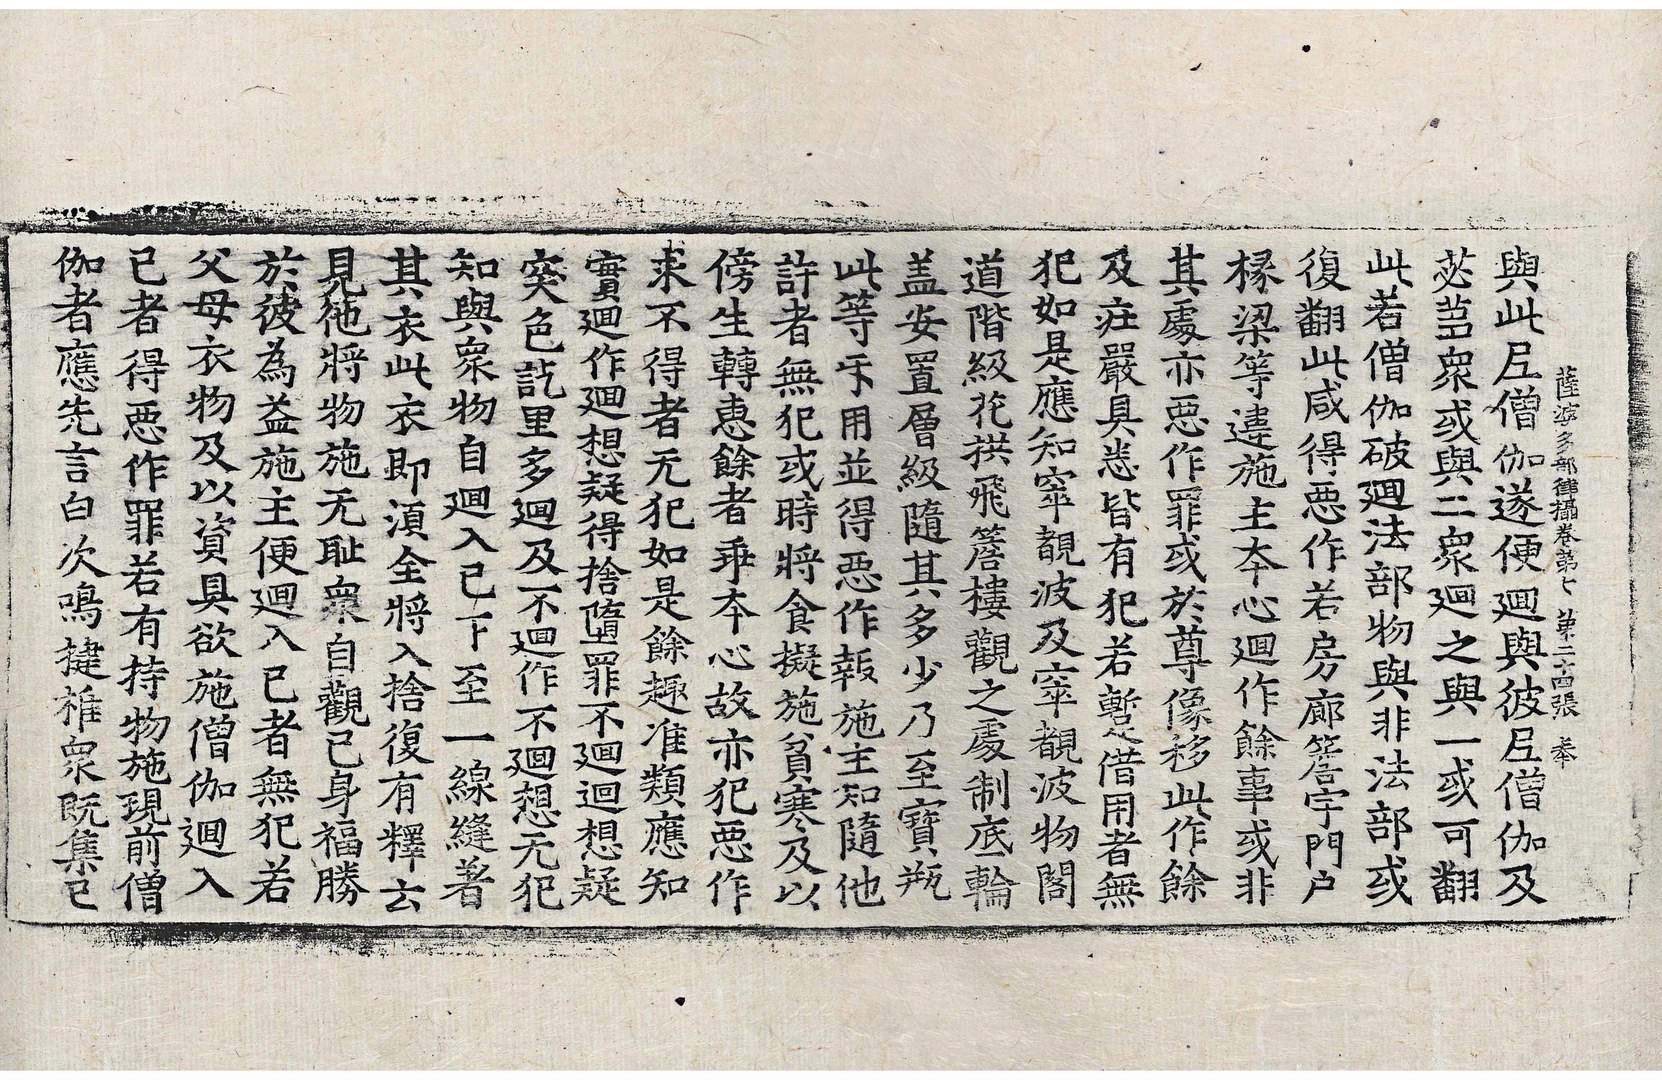 薩婆多部律攝卷第七　第二十四張　奉
與此尼僧伽遂便迴與彼尼僧伽及
苾芻衆或與二衆迴之與一或可翻
此若僧伽破迴法部物與非法部或
復翻此咸得惡作若房廊簷宇門户
椽梁等違施主本心迴作餘事或非
其處亦惡作罪或於尊像移此作餘
及莊嚴具悉皆有犯若暫借用者無
犯如是應知窣覩波及窣覩波物閣
道階級花拱飛簷樓觀之處制底輪
盖安置層級隨其多少乃至寶瓶
此等𢆯用並得惡作報施主知隨他
許者無犯或時將食擬施貧寒及以
傍生轉惠餘者乖本心故亦犯惡作
求不得者无犯如是餘趣准類應知
實迴作迴想疑得捨墮罪不迴迴想疑
突色訖里多迴及不迴作不迴想无犯
知與衆物自迴入己下至一線縫著
其衣此衣即湏全將入捨復有釋云
見他將物施无耻衆自觀己身福勝
於彼為益施主便迴入己者無犯若
父母衣物及以資具欲施僧伽迴入
己者得惡作罪若有持物施現前僧
伽者應先言白次鳴揵椎衆既集已